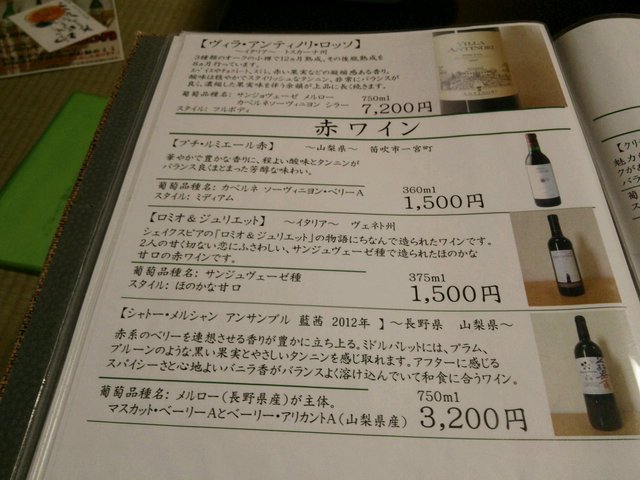 【ヴィラ・アンティノリ・ロッソ】
～イタリア～ トスカーナ州
3種類のオークの小樽で12ヵ月熟成、その後瓶熟成を
8ヵ月行っています。
赤い果実などの凝縮感ある香り。
酸味は穏やかでスタイリッシュなタンニン、非常にバランスが
良く、濃縮した果実味を伴う余韻が上品に長く続きます。
葡萄品種名: サンジョヴェーゼ メルロー
カベルネソーヴィニヨン シラー
750ml
スタイル: フルボディ
7,200円
VILLA
ANTINORI
赤ワイン
【プチ・ルミエール赤】 ～山梨県～ 笛吹市一宮町
華やかで豊かな香りに、程よい酸味とタンニンが
バランス良くまとまった芳醇な味わい。
葡萄品種名: カベルネ ソーヴィニヨン・ベリーA
360ml
スタイル: ミディアム
1,500円
【ロミオ＆ジュリエット】 ～イタリア～ ヴェネト州
シェイクスピアの「ロミオ＆ジュリエット」の物語にちなんで造られたワインです。
2人の甘く切ない恋にふさわしい、サンジュヴェーゼ種で造られたほのかな
甘口の赤ワインです。
葡萄品種名: サンジュヴェーゼ種
375ml
スタイル: ほのかな甘口
1,500円
【シャトー・メルシャン アンサンブル 藍茜 2012年 】 ～長野県 山梨県～
赤系のベリーを連想させる香りが豊かに立ち上る。ミドルパレットには、プラム、
プルーンのような黒い果実とやさしいタンニンを感じ取れます。アフターに感じる
スパイシーさと心地よいバニラ香がバランスよく溶け込んでいて和食に合うワイン。
葡萄品種名: メルロー(長野県産)が主体。
750ml
マスカット・ベーリーAとベーリー・アリカントA(山梨県産)
3,200円